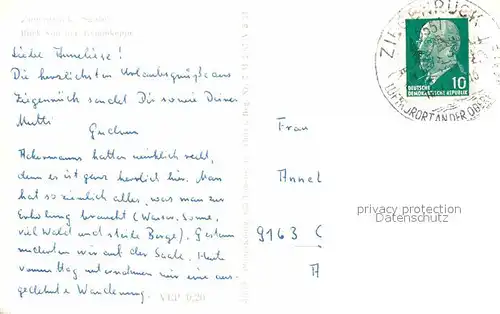 Ziegenrück (Saale)
Blick von der
Liebe Anneliese!
Die herzlichsten Urlaubsgrüße aus
Ziegenrück sendet Dir sowie Deiner
Mutti
Gudrun
Ackermanns hatten wirklich recht,
denn es ist ganz herrlich hier. Man
hat so ziemlich alles, was man zur
Erholung braucht (Wasser, Sonne,
viel Wald und steile Berge). Gestern
ruderten wir auf der Saale. Heute
vormittag unternahmen wir eine aus-
gedehnte Wanderung.
VEP 0,20
ZIEGENRÜCK
LUFTKURORT AN DER OBEREN
10
DEUTSCHE
DEMOKRATISCHE REPUBLIK
Frau
Annel
9163
privacy protection
Datenschutz